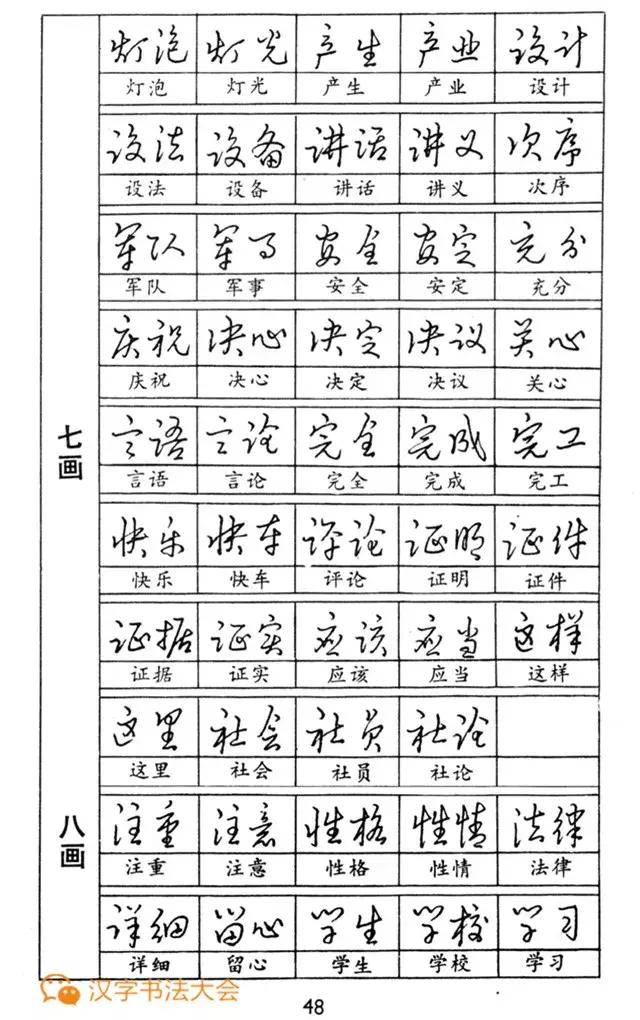 灯泡 灯光 产生 产业 设计
灯泡 灯光 产生 产业 设计
设法 设备 讲话 讲义 次序
设法 设备 讲话 讲义 次序
军队 军事 安全 安定 充分
军队 军事 安全 安定 充分
庆祝 决心 决定 决议 关心
庆祝 决心 决定 决议 关心
七画
言语 言论 完全 完成 完工
言语 言论 完全 完成 完工
快乐 快车 评论 证明 证件
快乐 快车 评论 证明 证件
证据 证实 应该 应当 这样
证据 证实 应该 应当 这样
这里 社会 社员 社论
这里 社会 社员 社论
八画
注重 注意 性格 性情 法律
注重 注意 性格 性情 法律
详细 留心 学生 学校 学习
详细 留心 学生 学校 学习
汉字书法大会
48